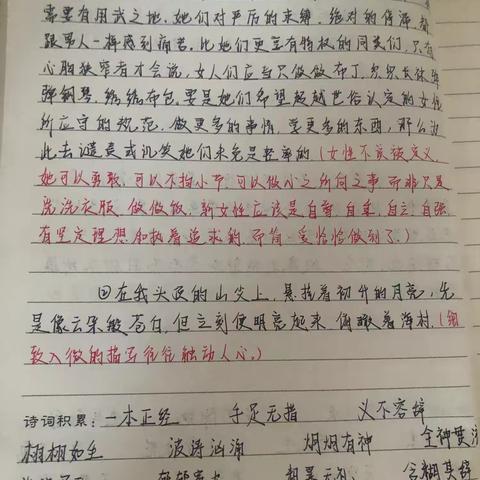 需要有用武之地。她们对严厉的束缚,绝对的停滞,都
跟男人一样感到痛苦,比她们更享有特权的同类们,只有
心胸狭窄者才会说,女人们应当只做做布丁,织织长袜,弹
弹钢琴,绣绣布包,要是她们希望超越世俗认定的女性
所应守的规范,做更多的事情,学更多的东西,那么为
此去谴责或讥笑她们未免是轻率的(女性不该被定义,
她可以勇敢,可以不拘小节,可以做心之所向之事,而非只是
洗洗衣服,做做饭,新女性应该是自尊、自重、自立、自强,
有坚定理想和执着追求的,而简·爱恰恰做到了。)
②在我头顶的山尖上,悬挂着初升的月亮,先
是像云朵般苍白,但立刻便明亮起来,俯瞰着海村,(细
致入微的描写往往触动人心。)
诗词积累:一本正经 手足无措 义不容辞
栩栩如生 波涛汹涌 炯炯有神 全神贯注
含糊其辞